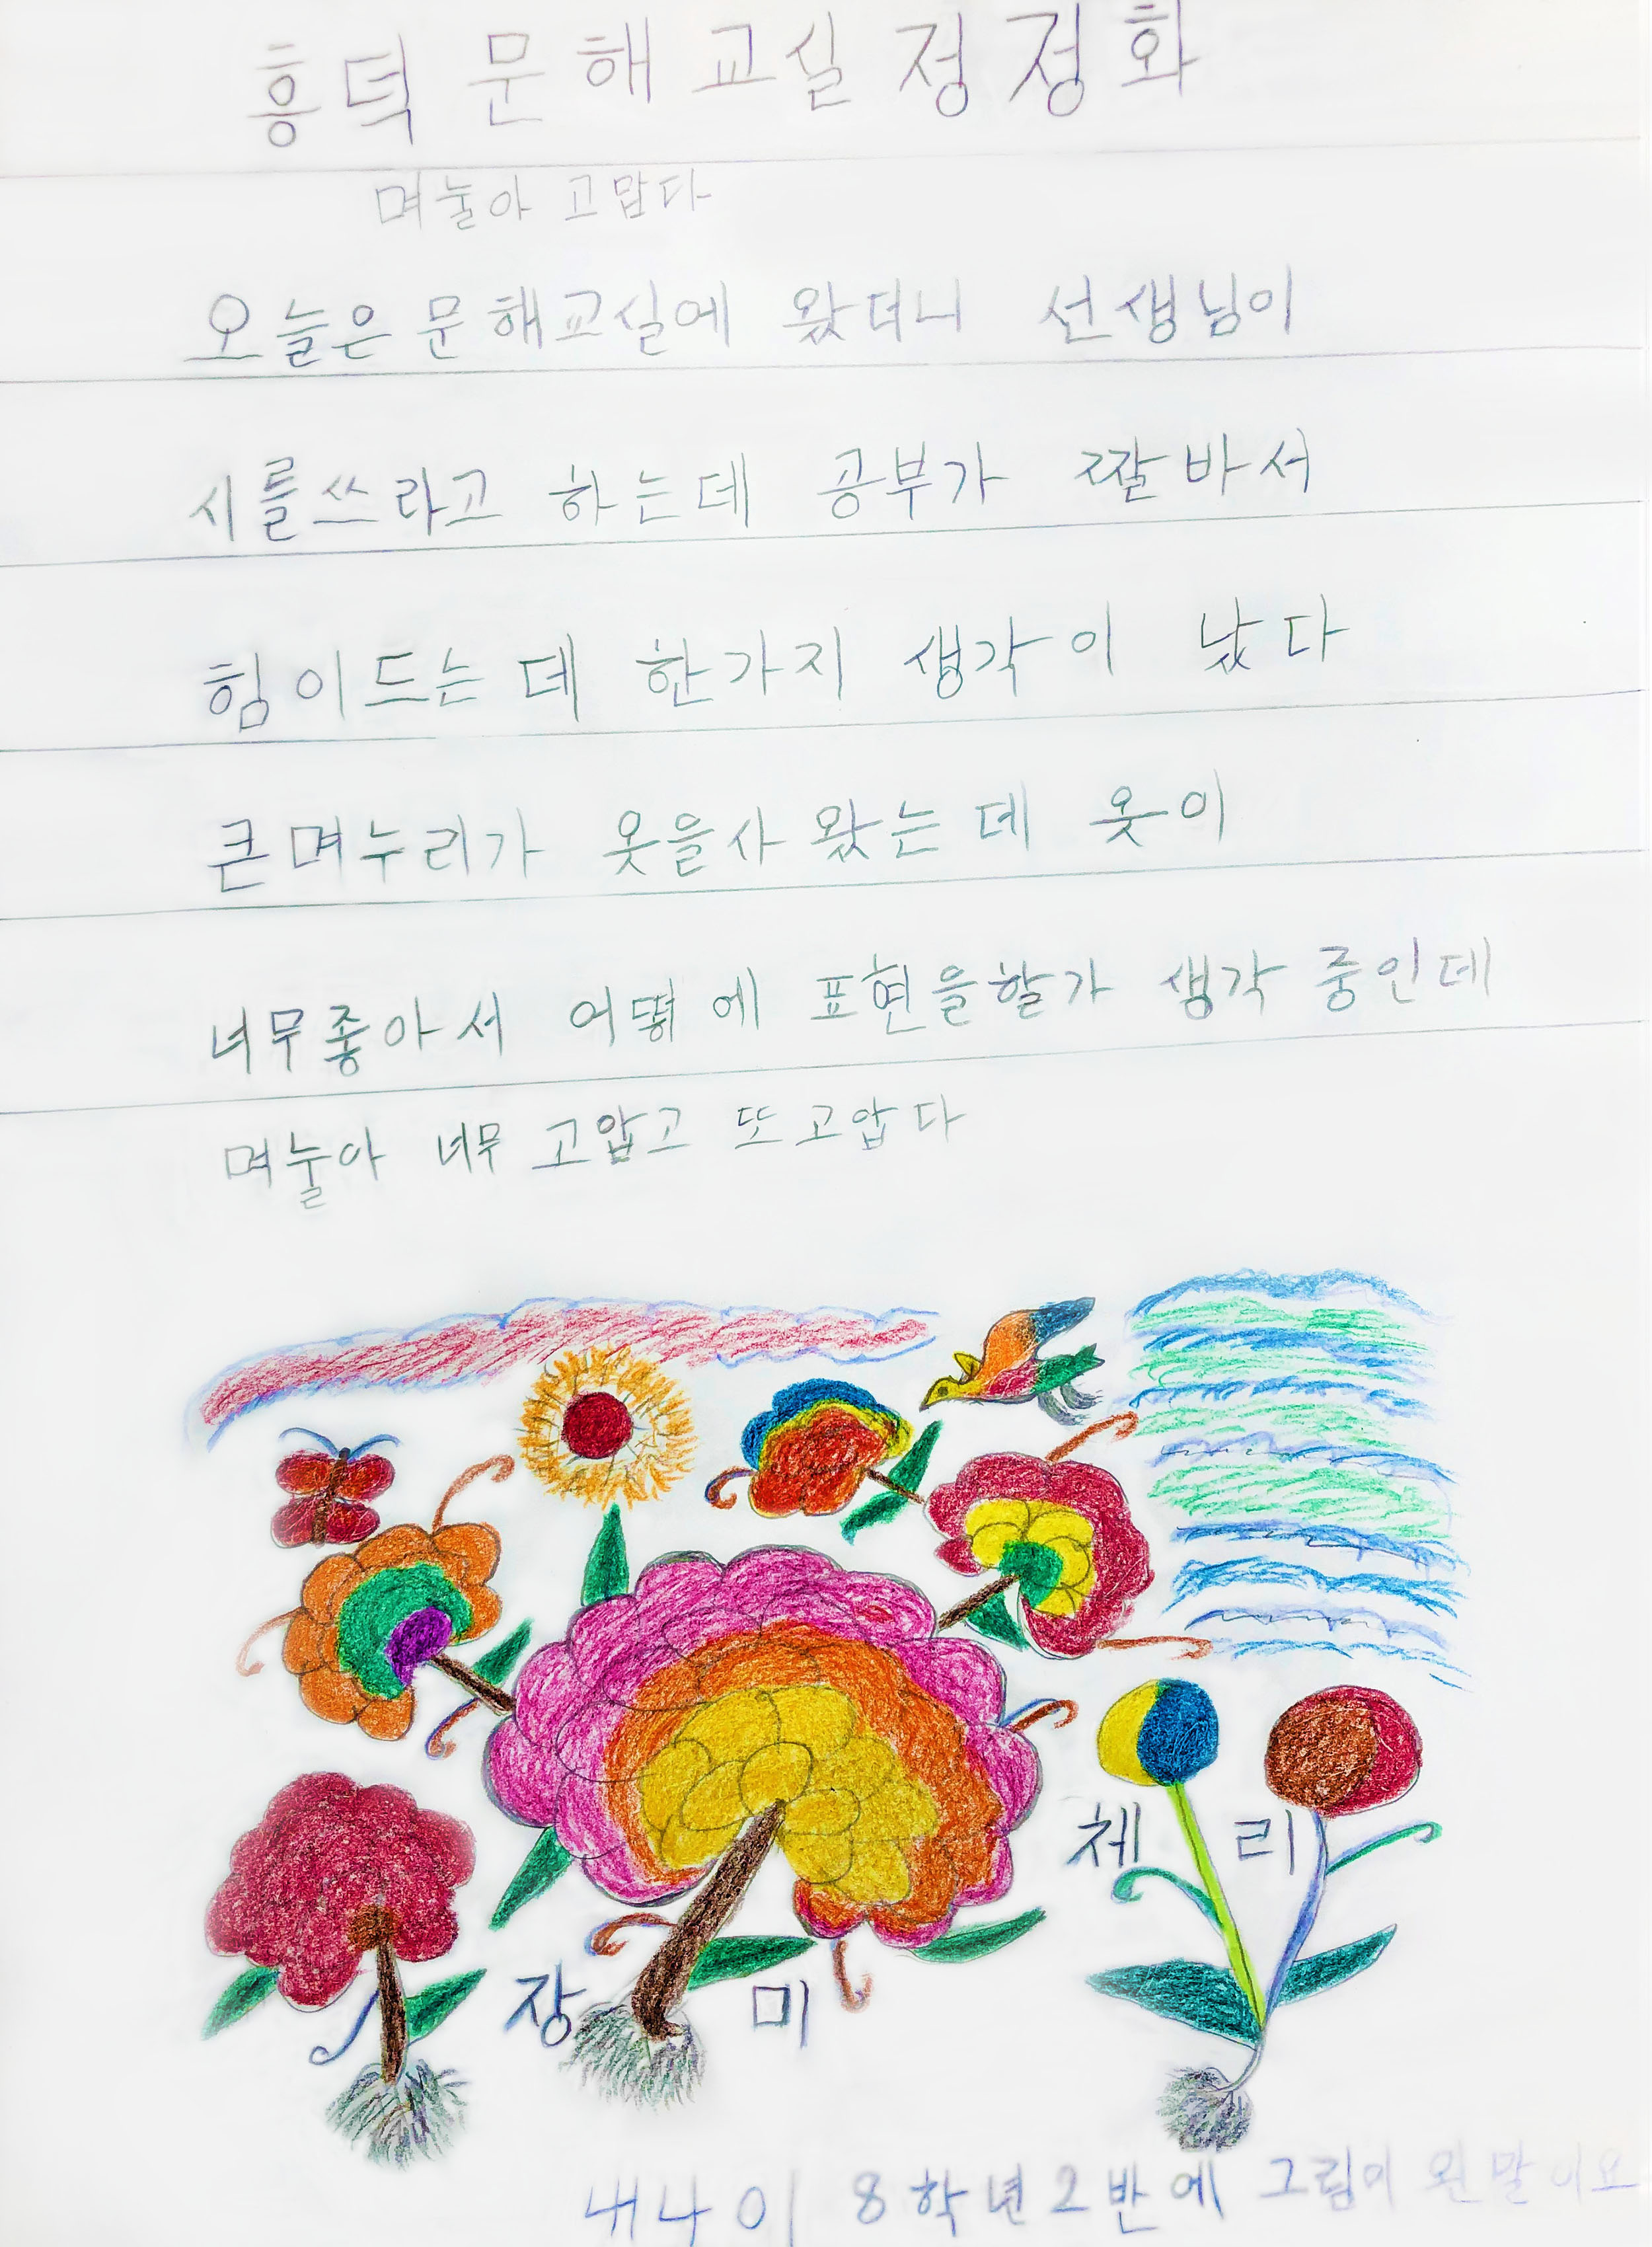 흥덕 문해 교실 정정화
며눌아 고맙다
오늘은 문해교실에 왔더니 선생님이
시를쓰라고 하는데 공부가 짧바서
힘이드는데 한가지 생각이 났다
큰며누리가 옷을사왔는데 옷이
너무좋아서 어떻에 표현을할가 생각중인데
며눌아 너무 고맙고 또고맙다
체리
장미
내나이 8학년2반에 그림이 왼말이요